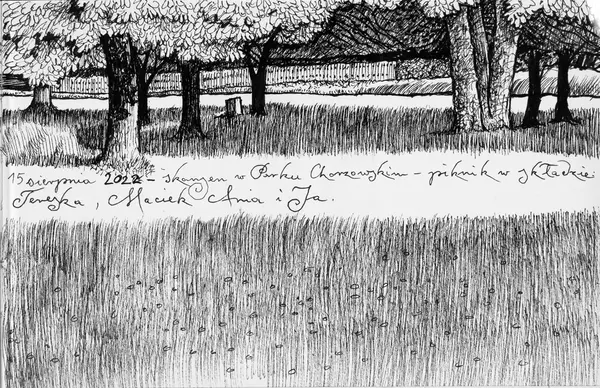 15 sierpnia 2022 - skansen w Parku Chorzowskim - piknik w składzie:
Tereska, Maciek Ania i Ja.